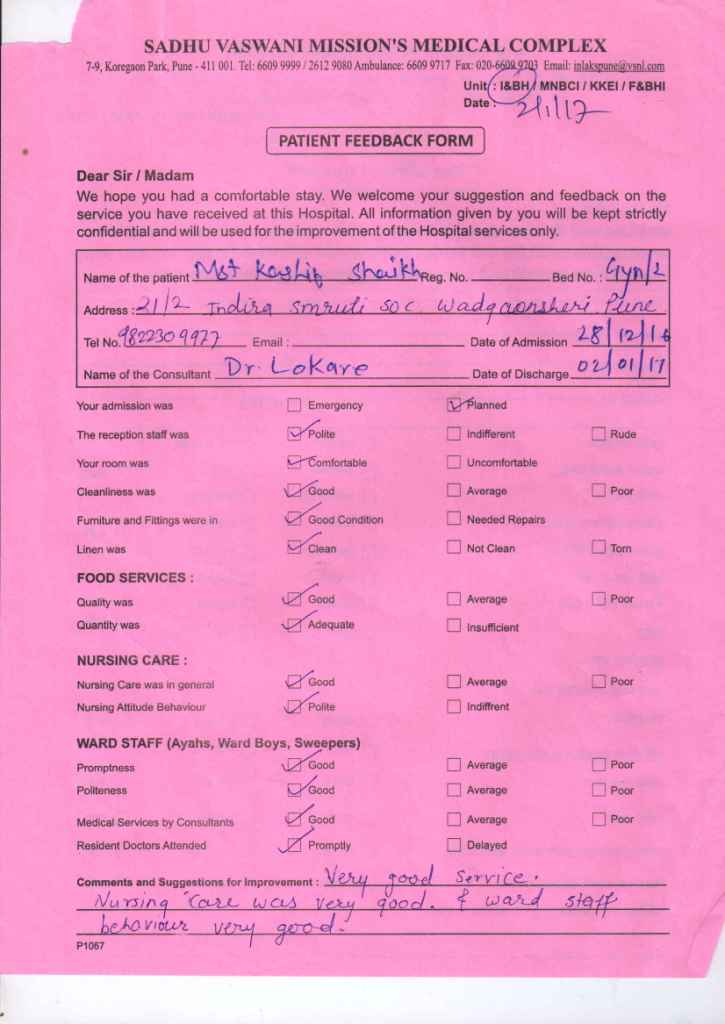 SADHU VASWANI MISSION'S MEDICAL COMPLEX
7-9, Koregaon Park, Pune - 411 001. Tel: 6609 9999 / 2612 9080 Ambulance: 6609 9717 Fax: 020-6609 9703 Email: inlakspune@vsnl.com
Unit : I&BH / MNBCI / KKEI / F&BHI
Date : 2/1/17
PATIENT FEEDBACK FORM
Dear Sir / Madam
We hope you had a comfortable stay. We welcome your suggestion and feedback on the
service you have received at this Hospital. All information given by you will be kept strictly
confidential and will be used for the improvement of the Hospital services only.
Name of the patient Mst Kashif Shaikh Reg. No. Bed No. : Gyn/2
Address : 21/2 Indira smruti soc wadgaonsheri Pune
Tel No. 9822309977 Email : Date of Admission 28/12/16
Name of the Consultant Dr. Lokare Date of Discharge 02/01/17
Your admission was Emergency Planned
The reception staff was Polite Indifferent Rude
Your room was Comfortable Uncomfortable
Cleanliness was Good Average Poor
Furniture and Fittings were in Good Condition Needed Repairs
Linen was Clean Not Clean Torn
FOOD SERVICES :
Quality was Good Average Poor
Quantity was Adequate Insufficient
NURSING CARE :
Nursing Care was in general Good Average Poor
Nursing Attitude Behaviour Polite Indiffrent
WARD STAFF (Ayahs, Ward Boys, Sweepers)
Promptness Good Average Poor
Politeness Good Average Poor
Medical Services by Consultants Good Average Poor
Resident Doctors Attended Promptly Delayed
Comments and Suggestions for Improvement : Very good service.
Nursing care was very good. & ward staff
behaviour very good.
P1067